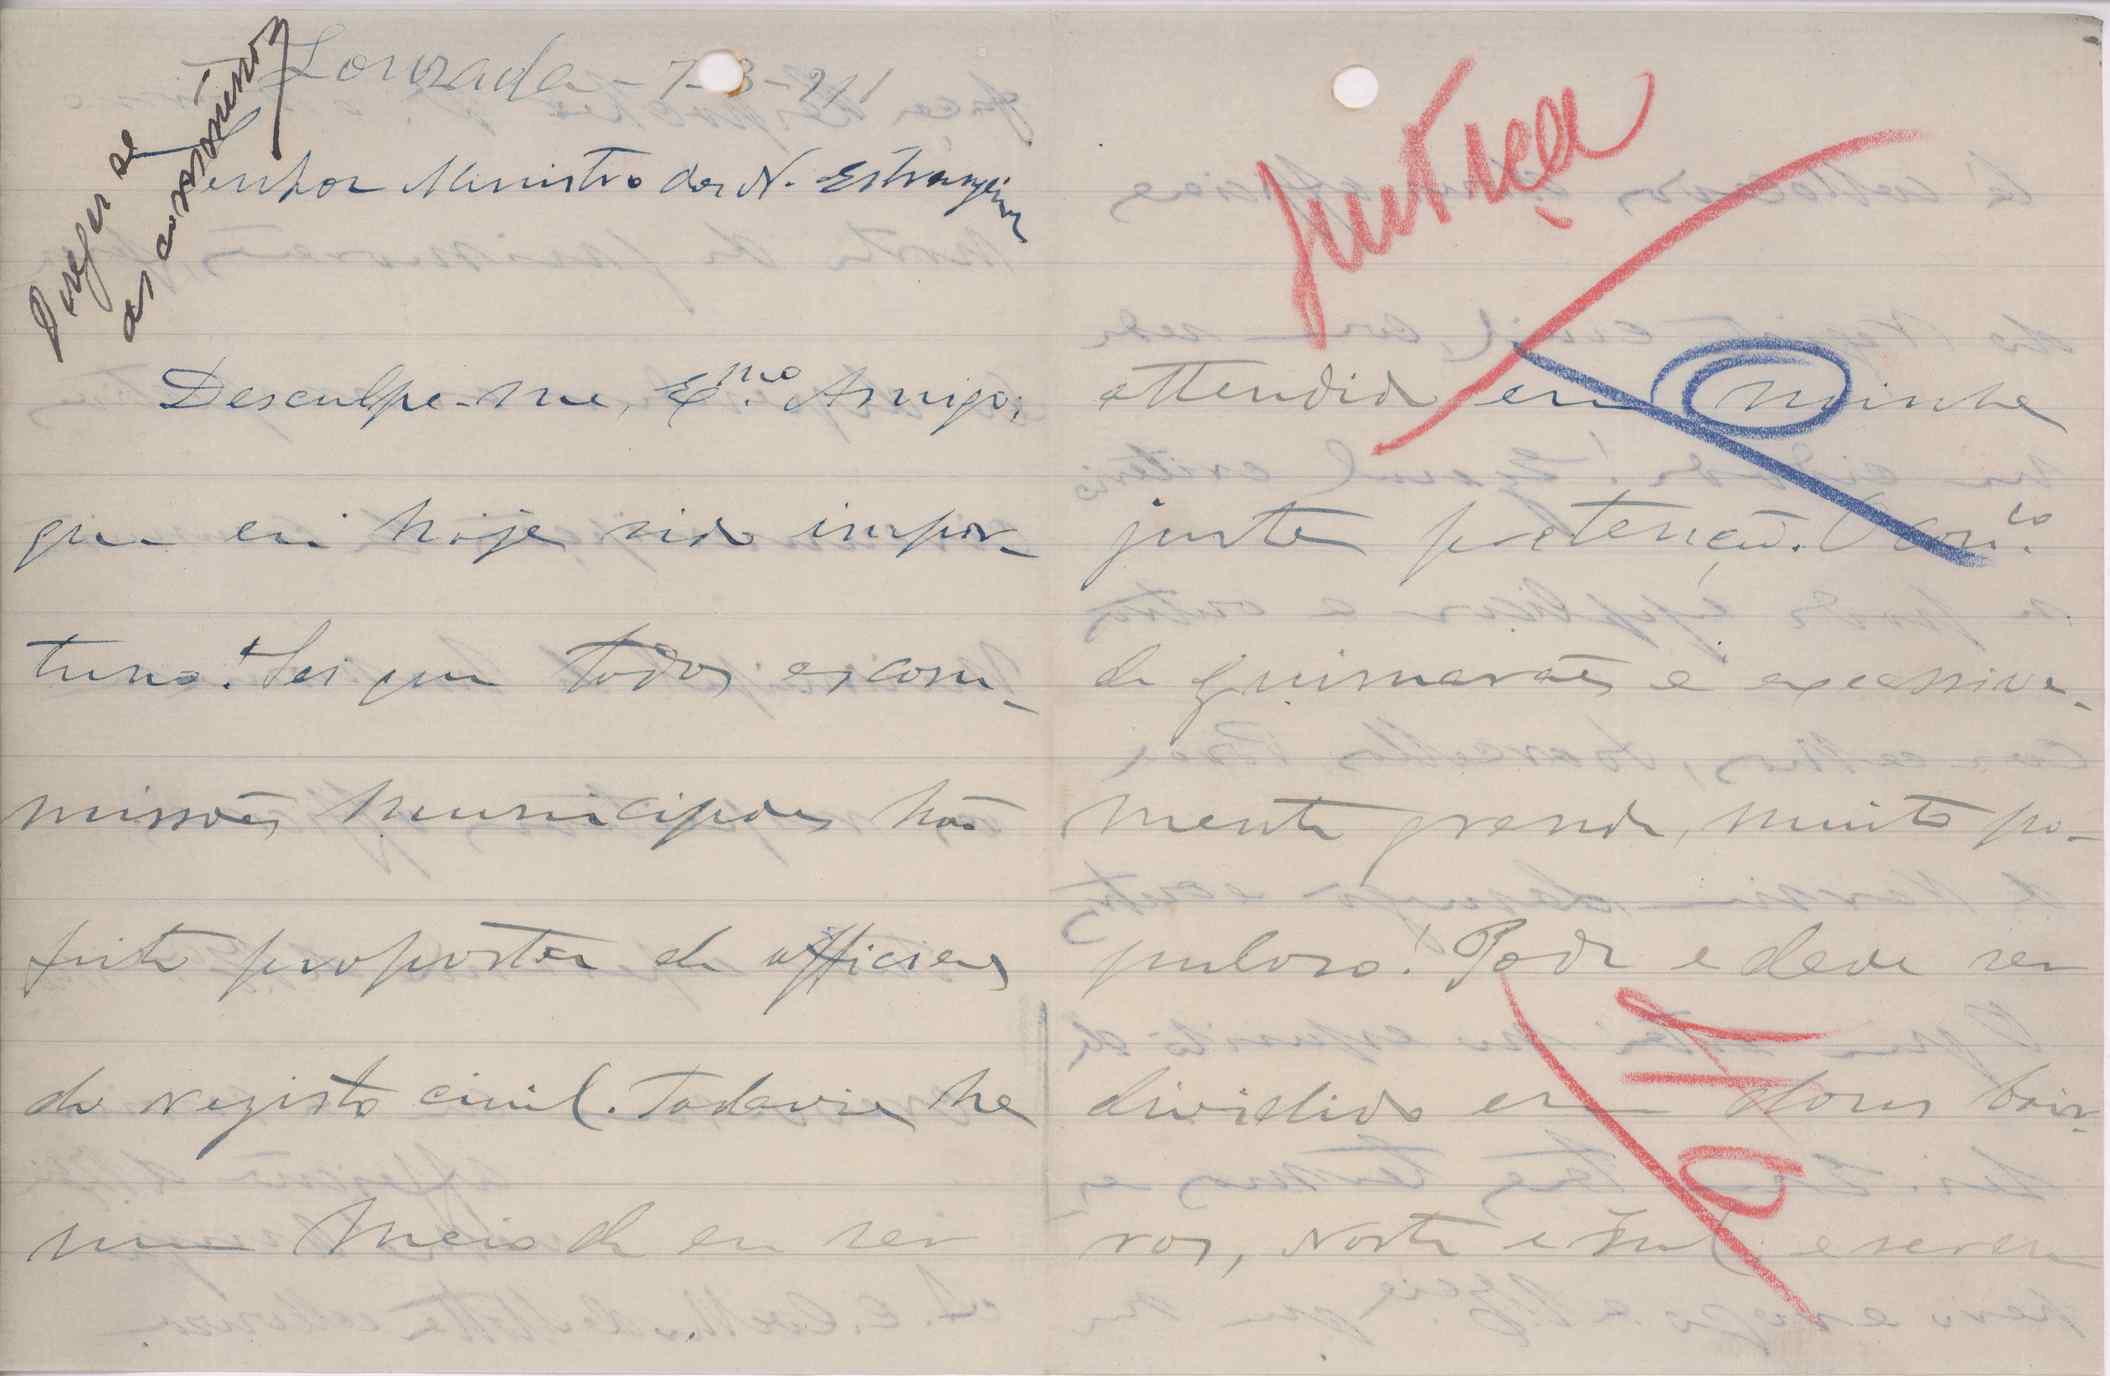 Louzada - 7-3-911
as cam
Senhor Ministro dos N. Estrangeiros
Desculpe-me, Ex.mo Amigo,
que eu hoje seja impor-
tuno! Sei que todas as com-
missões municipaes hão
feito propostas de officiaes
do registo civil. Todavia ha
um meio de eu ser
Justiça
attendido em minha
justa pretenção. O con.co
de Guimarães é excessiva-
mente grande, muito po-
puloso! Pode e deve ser
dividido em dous bair-
ros, Norte e Sul e serem